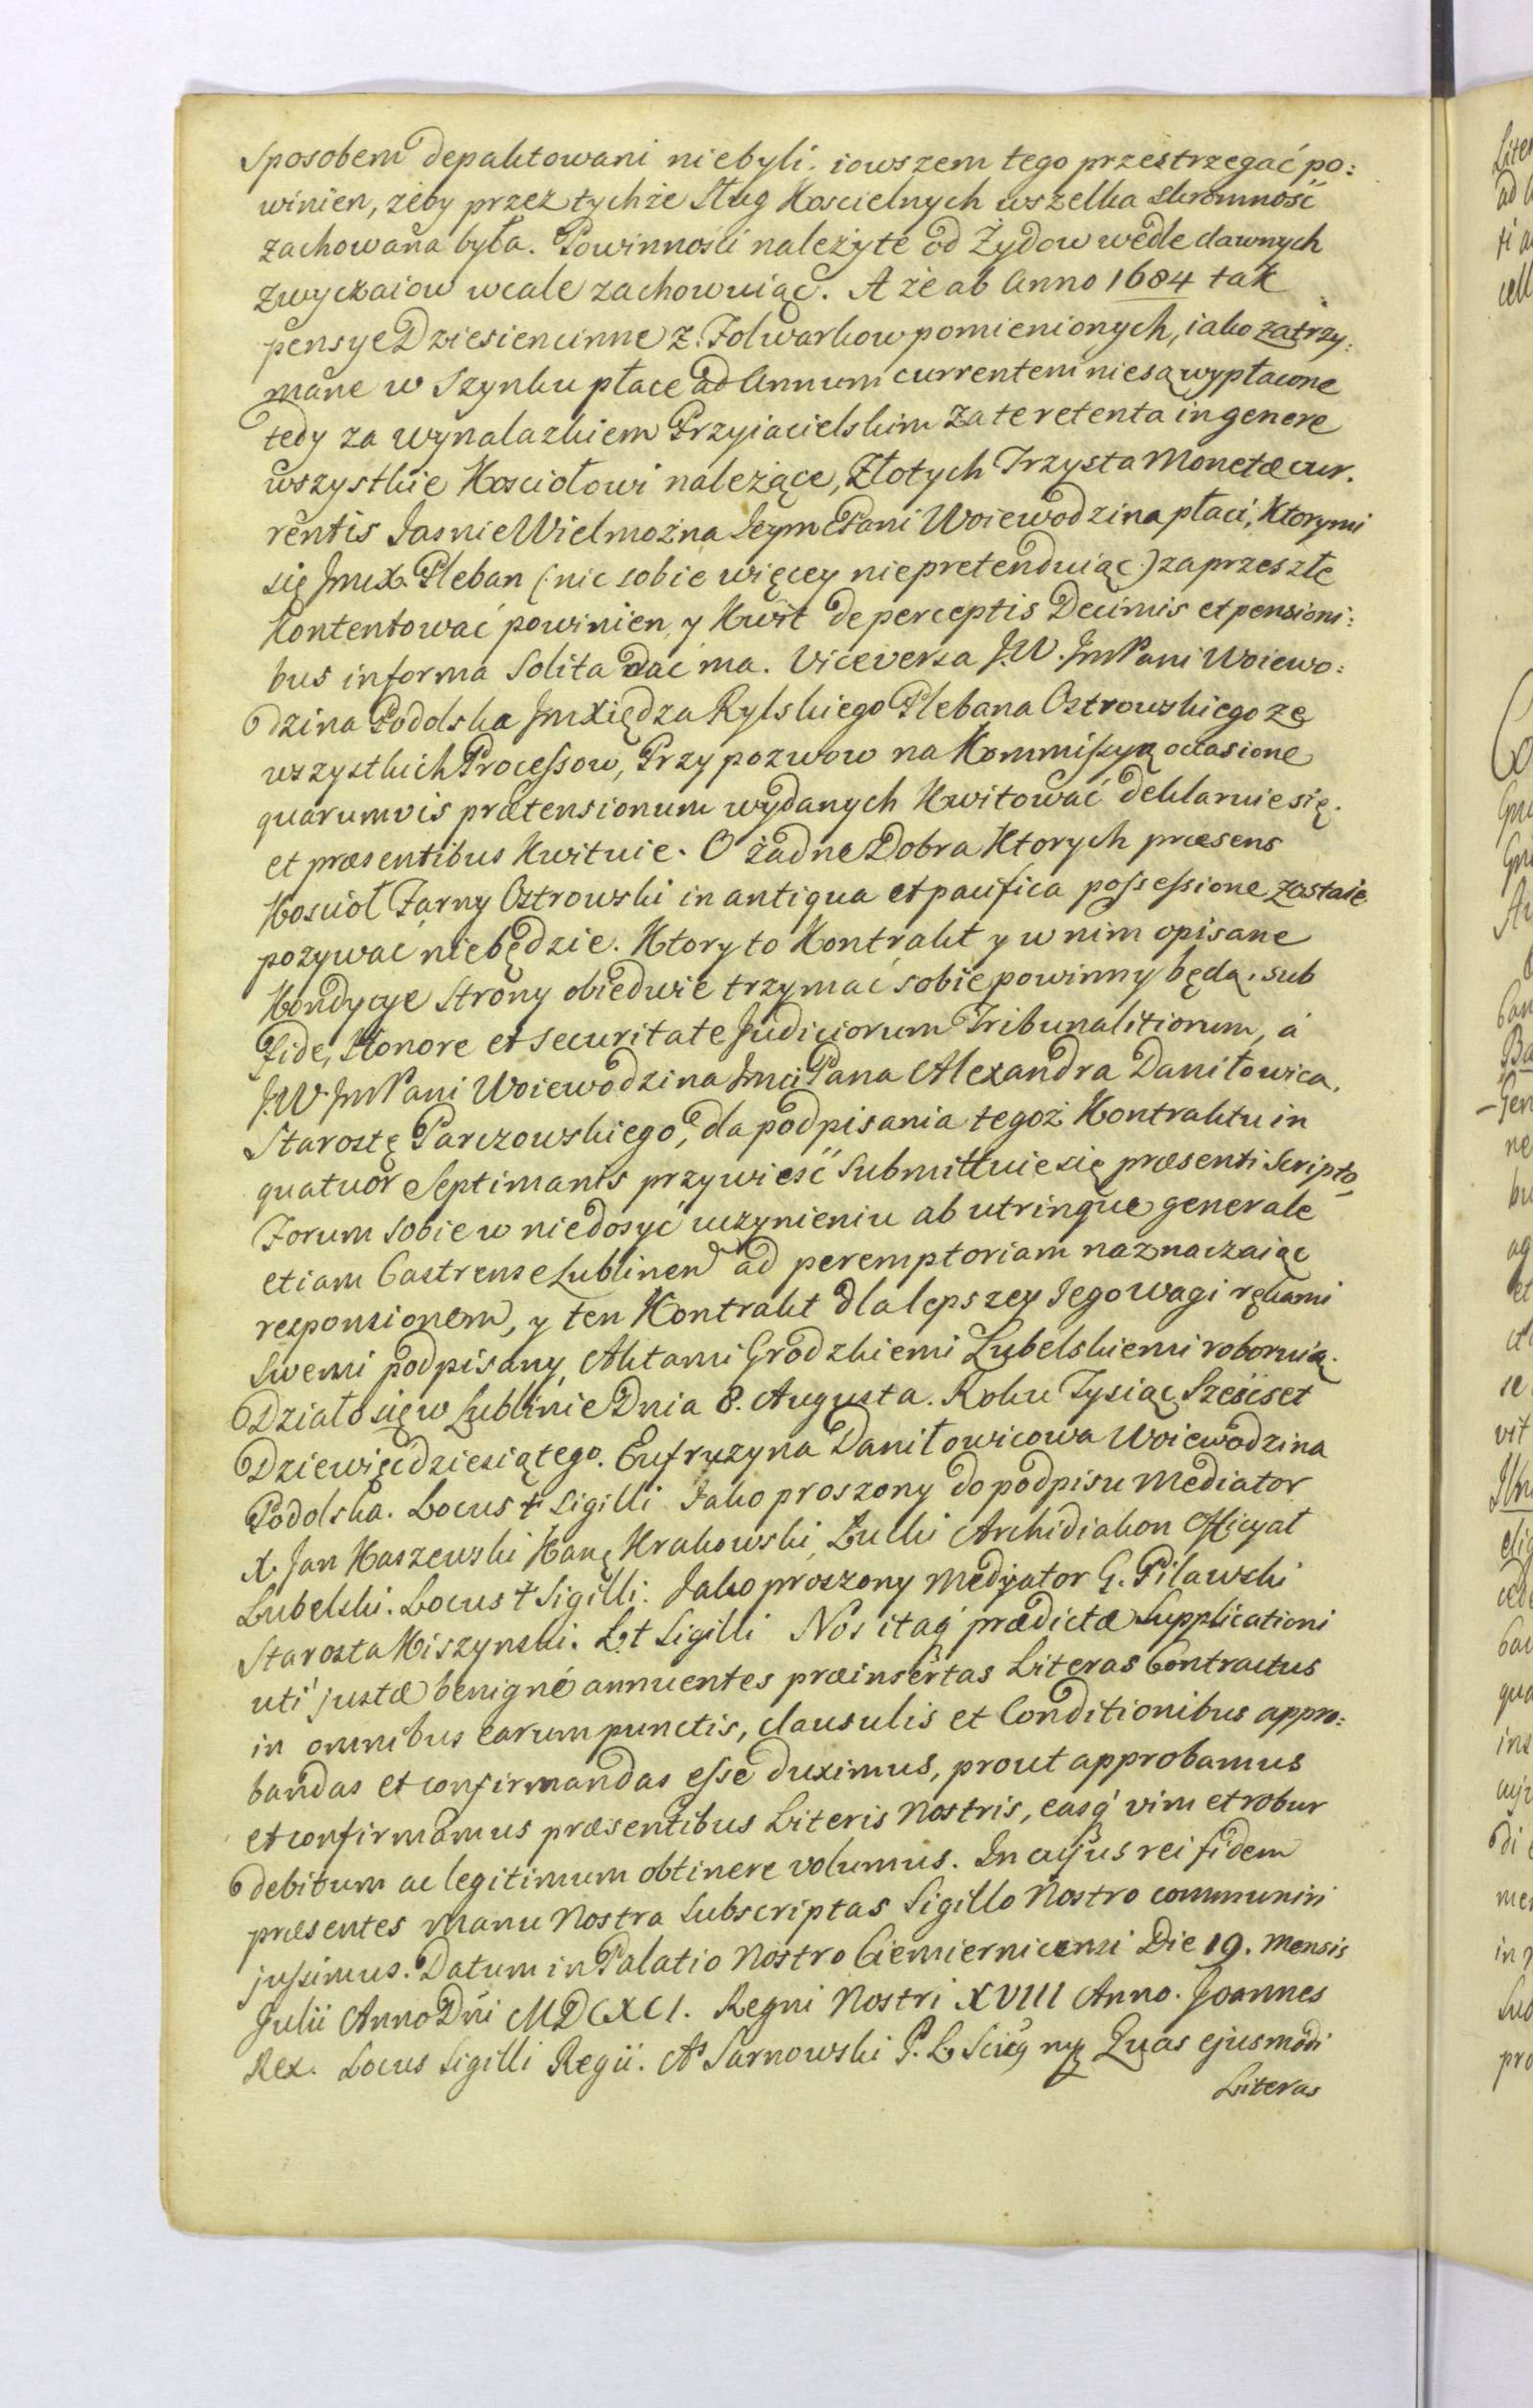 Sposobem depaktowani niebyli: iowszem tego przestrzegać po:
winien, żeby przez tychże Sług Koscielnych wszelka skromność
zachowana była. Powinności należyte od Żydow wedle dawnych
zwyczaiow wcale zachowuiąc. A że ab Anno 1684 tak
pensye Dziesiencinne z Folwarkow pomienionych, iako zatrzy:
mane w Szynku płace ad Annum currentem niesą wypłacone
tedy za wynalazkiem Przyiacielskim za te retenta in genere
wszystkie Kosciołowi należące, Złotych Trzysta Monetæ cur.
rentis Jasnie Wielmożna Jeymc Pani Woiewodzina płaci, Ktorymi
się Jmx. Pleban (: nic sobie więcey niepretenduiąc :) za przeszłe
Kontentować powinien, y Kwit de perceptis Decimis et pensioni:
bus in forma Solita dać ma. Viceversa J.W. JmPani Woiewo:
dzina Podolska JmXiędza Rylskiego Plebana Ostrowskiego ze
wszystkich Processow, Przypozwow na Kommissyą occasione
quarumvis prætensionum wydanych Kwitować deklaruie się.
et præsentibus Kwituie. O żadne Dobra Ktorych præsens
Kosciół Farny Ostrowski in antiqua et pacifica possessione zostaie
pozywać niebędzie. Ktory to Kontrakt y w nim opisane
Kondycye Strony obiedwie trzymać sobie powinny będą. sub
Fide, Honore et securitate Judiciorum Tribunalitiorum, á
J.W. JmPani Woiewodzina Jmci Pana Alexandra Daniłowica,
Starostę Parczowskiego, dla podpisania tegoż Kontraktu in
quatuor Septimanis przywieść Submittuie się præsenti Scripto,
Forum sobie w niedosyć uczynieniu ab utrinque generale
etiam Castrense Lublinen ad peremptoriam naznaczaiąc
responsionem, y ten Kontrakt dla lepszey Jego wagi rękami
Swemi podpisany, Aktami Grodzkiemi Lubelskiemi roboruią.
Działo się w Lublinie Dnia 8. Augusta. Roku Tysiąc Sześćset
Dziewięćdziesiątego. Eufrozyna Daniłowicowa Woiewodzina
Podolska. Locus † Sigilli Jako proszony do podpisu Mediator
X. Jan Kaszewski Kan: Krakowski, Łucki Archidiakon Officyał
Lubelski. Locus † Sigilli. Jako proszony Medyator G. Pilawski
Starosta Miszynski. L. † Sigilli Nos itaq prædictæ Supplicationi
uti justæ benigné annuentes præinsertas Literas Contractus
in omnibus earum punctis, clausulis et Conditionibus appro:
bandas et confirmandas esse duximus, prout approbamus
et confirmamus præsentibus Literis Nostris, easq vim et robur
debitum ac legitimum obtinere volumus. In cujus rei fidem
præsentes manu Nostra Subscriptas Sigillo Nostro communiri
jussimus. Datum in Palatio Nostro Ciemiernicensi Die 19. Mensis
Julii Anno Dni MDCXCI. Regni Nostri XVIII Anno. Joannes
Rex. Locus Sigilli Regii. As Sarnowski P. L. Quas ejusmodi
Literas